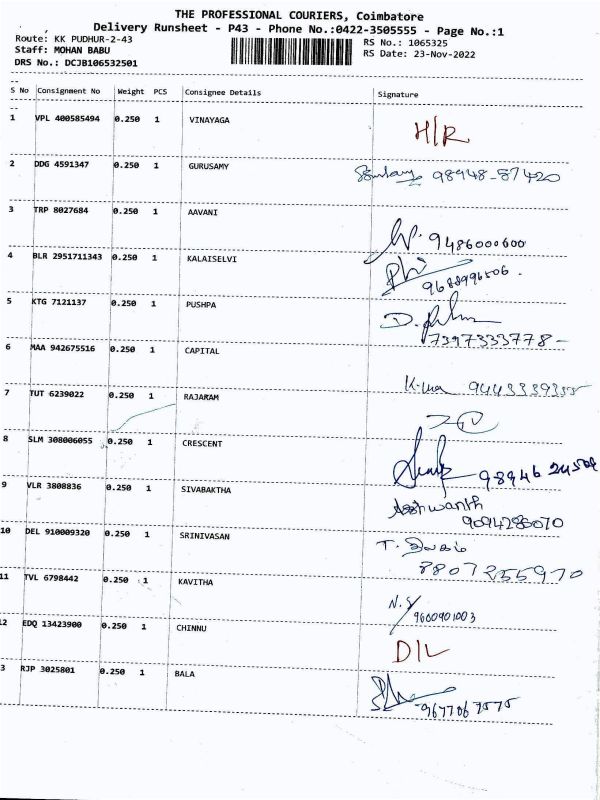 THE PROFESSIONAL COURIERS, Coimbatore
Delivery Runsheet - P43 - Phone No.:0422-3505555 - Page No.:1
Route: KK PUDHUR-2-43 RS No.: 1065325
Staff: MOHAN BABU RS Date: 23-Nov-2022
DRS No.: DCJB106532501
S No Consignment No Weight PCS Consignee Details Signature
1 VPL 400585494 0.250 1 VINAYAGA H/R
2 DDG 4591347 0.250 1 GURUSAMY 98948-57420
3 TRP 8027684 0.250 1 AAVANI 9486000600
4 BLR 2951711343 0.250 1 KALAISELVI
5 KTG 7121137 0.250 1 PUSHPA 7397333778-
6 MAA 942675516 0.250 1 CAPITAL
7 TUT 6239022 0.250 1 RAJARAM
8 SLM 308006055 0.250 1 CRESCENT
9 VLR 3808836 0.250 1 SIVABAKTHA
10 DEL 910009320 0.250 1 SRINIVASAN
11 TVL 6798442 0.250 1 KAVITHA N.S 9600901003
12 EDQ 13423900 0.250 1 CHINNU D/L
3 RJP 3025801 0.250 1 BALA